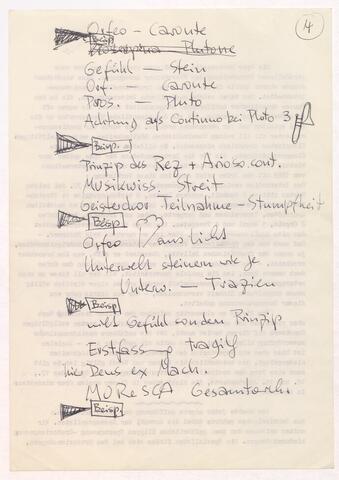 4
Orfeo – Caronte
Beisp.
Proserpina Plutone
Gefühl – Stein
Orf. – Caronte
Pros. – Pluto
Achtung als Continuo bei Pluto 3
Beisp.
Prinzip des Rez + Arioso cont.
Musikwiss. Streit
Geisterchor Teilnahme – Stumpfheit
Beisp
Orfeo ans Licht
Unterwelt steinern wie je
Unterw. – Trazien
Beisp
nicht Gefühl sondern Prinzip
Erstfass. tragisch
hie Deus ex Mach.
MORESCA Gesamtorch.
Beisp.